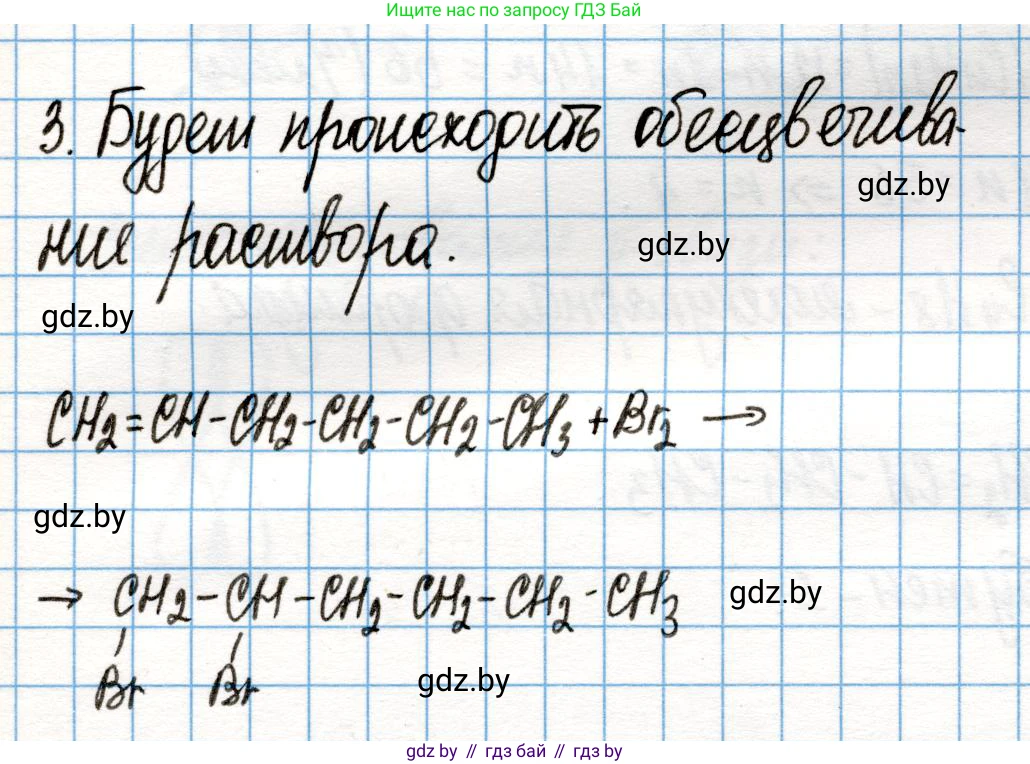 Ищите нас по запросу ГДЗ Бай
3. Будет происходить обесцвечива-
gdz.by
ние раствора.
gdz.by
gdz.by
CH₂=CH-CH₂-CH₂-CH₂-CH₃+Br₂ →
gdz.by
→ CH₂-CH-CH₂-CH₂-CH₂-CH₃
gdz.by
Br Br
gdz.by
gdz.by // гдз бай // гдз by